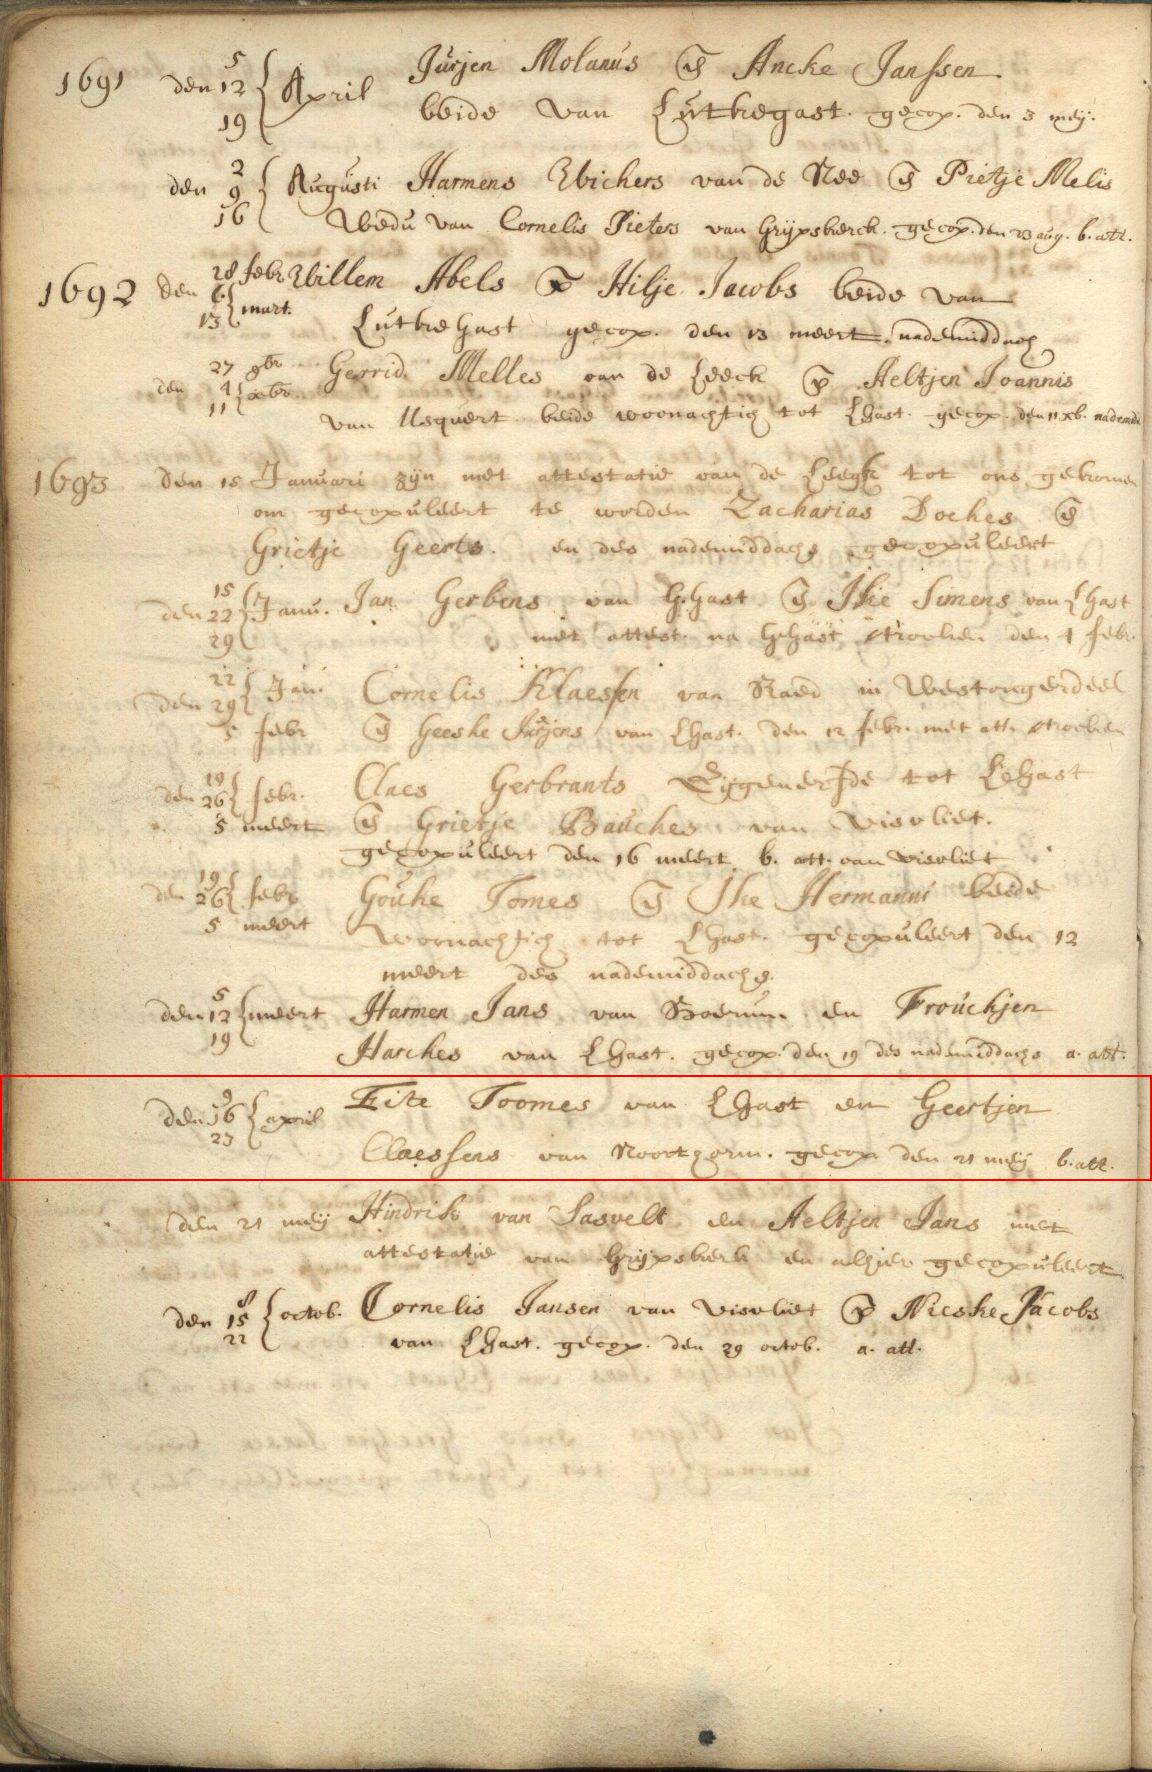 1691 den 5 12 19 April Jurjen Molanus & Ancke Janssen
beide van Lutkegast. gecop. den 3 meij.
den 2 9 16 Augusti Harmens Wichers van de Nee & Pietje Melis
Wedu van Cornelis Pieters van Grijpskerck. gecop. den 23 aug. b. att.
1692 den 28 febr. 6 13 mart. Willem Abels & Hilje Jacobs beide van
Lutke Gast gecop. den 13 meert. nademiddach
den 27 9br 4 11 xbr. Gerrid Melles van de Leeck & Aeltjen Joannis
van Usquert beide woonachtich tot LGast. gecop. den 11 xb. nademid
1693 den 15 Januari zijn met attestatie van de Leegk tot ons gekomen
om gecopuleert te worden Zacharias Doekes &
Grietje Geerts. en des nademiddachs gecopuleert
den 15 22 29 Janu. Jan Gerbens van GGast & Isie Simens van LGast
met attest. na GGast vtrocken den 1 febr.
den 22 29 Jan. Cornelis Klaessen van in Westongerdeel
5 febr & Geeske Jurjens van LGast. den 12 febr. met att. vtrocken
den 19 26 febr. Claes Gerbrants Eijgenerfde tot LGast
5 meert & Grietje Bauckes van Visvliet.
gecopuleert den 16 meert b. att. van visvliet
den 19 26 febr Gouke Tomes & Ike Hermanni beide
5 meert woonachtich tot LGast. gecopuleert den 12
meert des nademiddachs.
den 5 12 19 meert Harmen Jans van Boerum en Frouckjen
Harckes van LGast. gecop. den 19 des nademiddachs a. att.
den 9 16 23 april Eite Toomes van LGast en Geertjen
Claessens van Noorthorn. gecop. den 21 meij b. att.
den 21 meij Hindrik van Sasvelt en Aeltjen Jans met
attestatie van Grijpskerk en alhier gecopuleert
den 8 15 22 octob. Cornelis Jansen van visvliet & Nieske Jacobs
van LGast. gecop. den 29 octob. a. att.